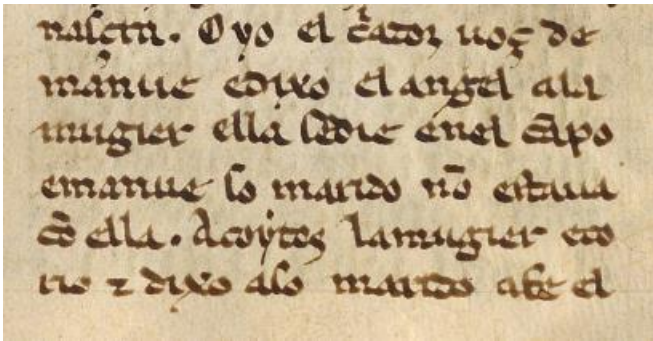 nasçin. Oyo el c̃atoꝛ uoç de
manue edixo el angel ala
mugier ella sedie enel cãpo
emanue so marido nõ estaua
cõ ella. Acoytos lamugier eco
rio ⁊ dixo aso marido afe el